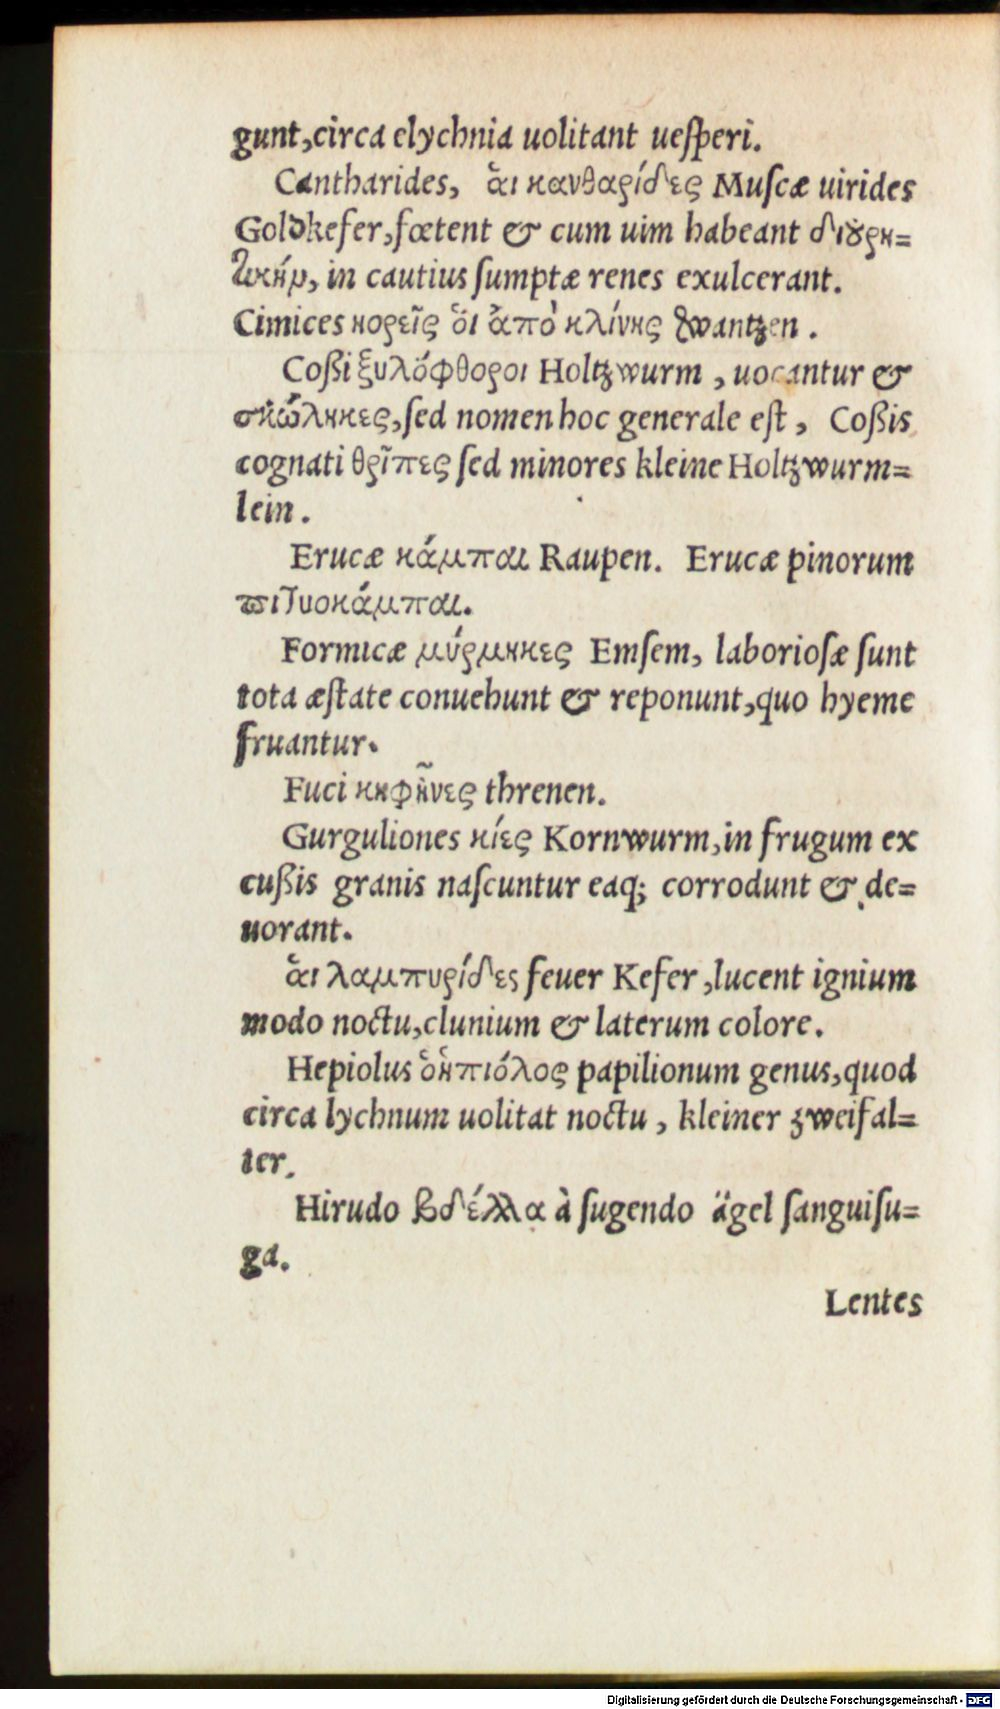 gunt,circa elychnia uolitant ueſperi.
Cantharides, ἃι κανθαρίδες Muſcæ uirides
Goldkefer,fœtent & cum uim habeant διȣρη=
τικήν, in cautius ſumptæ renes exulcerant.
Cimices κορεῖς ὅι ἀπὸ κλίνης Wantzen .
Coßi ξυλόφθοροι Holtzwurm , uocantur &
σκώληκες,ſed nomen hoc generale eſt , Coßis
cognati θρῖπες ſed minores kleine Holtzwurm=
lein .
Erucæ κάμπαι Raupen. Erucæ pinorum
πιτυοκάμπαι.
Formicæ μύρμηκες Emſem, laborioſæ ſunt
tota æſtate conuehunt & reponunt,quo hyeme
fruantur.
Fuci κηφῆνες threnen.
Gurguliones κίες Kornwurm,in frugum ex
cußis granis naſcuntur eaq; corrodunt & de=
uorant.
ἃι λαμπυρίδες feuer Kefer ,lucent ignium
modo noctu,clunium & laterum colore.
Hepiolus ὁἠπιόλος papilionum genus,quod
circa lychnum uolitat noctu , kleiner zweifal=
ter.
Hirudo βδέλλα à ſugendo ägel ſanguiſu=
ga.
Lentes
Digitalisierung gefördert durch die Deutsche Forschungsgemeinschaft - DFG